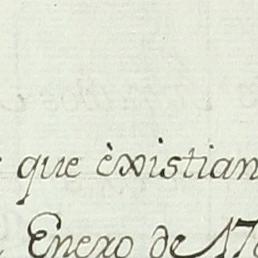 que èxistian
Enero de 17